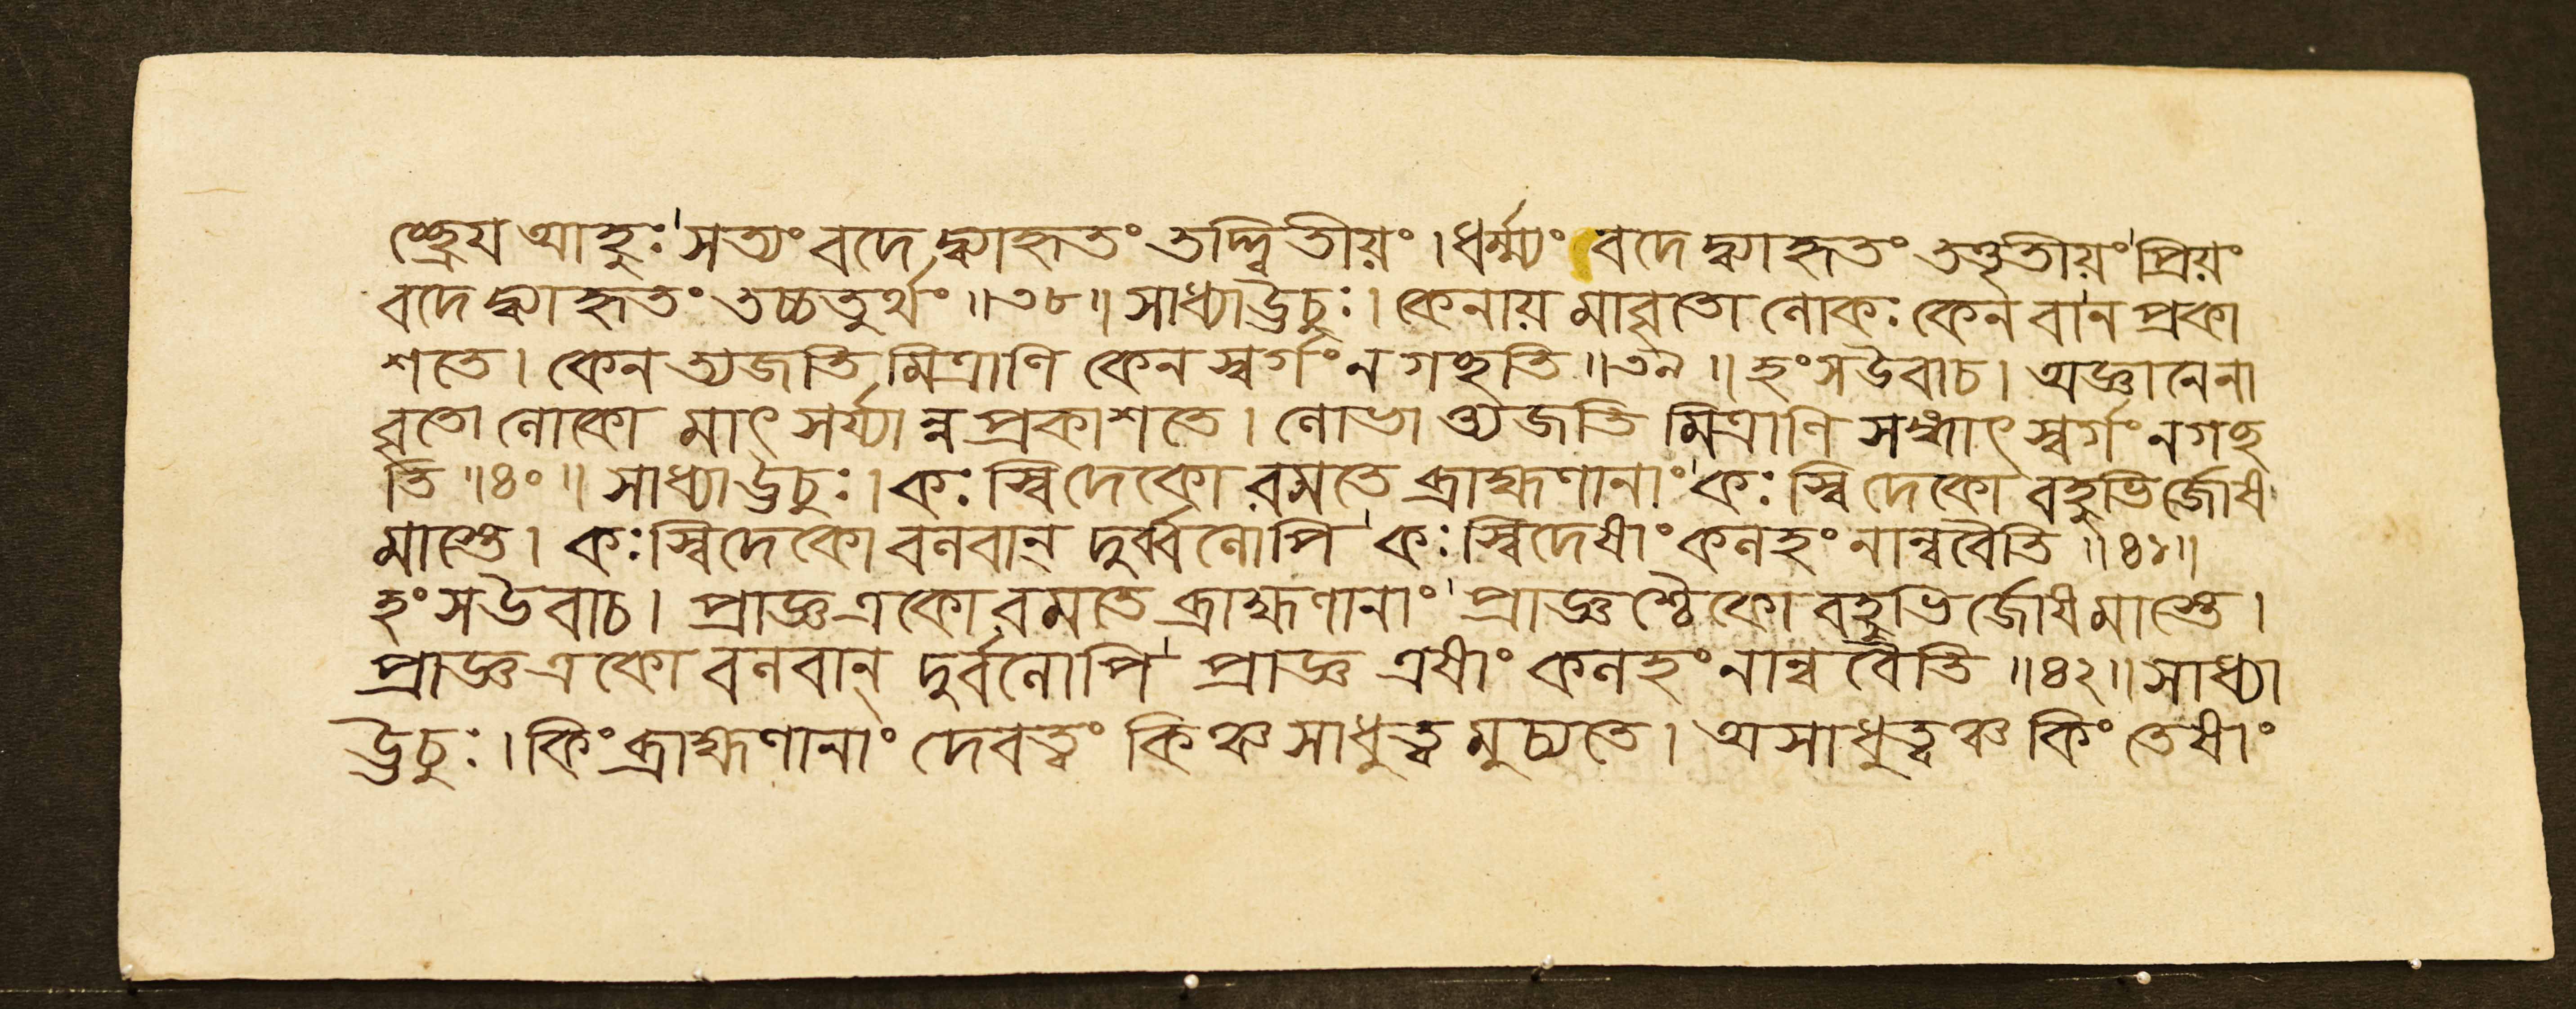 শ্ছ্রেয আহুঃ'সত্যং বদেদ্ব্যাহৃতং তদ্দ্বিতীয়ং।ধর্ম্ম্যং বদেদ্ব্যাহৃতং তত্তৃতীয়ং'প্রিয়ং
বদেদ্ব্যাহৃতং তচ্চতুর্থং॥৩৮॥সাধ্যাঊচুঃ।কেনায়মাবৃতো লোকঃ কেন বা ন প্রকা
শতে। কেন ত্যজতি মিত্রাণি কেন স্বর্গং ন গচ্ছতি॥৩৯॥হংসউবাচ।অজ্ঞানেনা
বৃতো লোকো মাৎসর্য্যান্ন প্রকাশতে। লোভাত্ত্যজতি মিত্রাণি সঙ্গাৎ স্বর্গং ন গচ্ছ
তি॥৪০॥সাধ্যাঊচুঃ।কঃ স্বিদেকো রমতে ব্রাহ্মণানাং'কঃ স্বিদেকো বহুভির্জোষ
মাস্তে। কঃ স্বিদেকো বলবান্ দুর্ব্বলোপি'কঃ স্বিদেষাং কলহং নান্ববৈতি॥৪১॥
হংসউবাচ। প্রাজ্ঞ একো রমতে ব্রাহ্মণানাং'প্রাজ্ঞশ্চৈকো বহুভির্জোষমাস্তে।
প্রাজ্ঞ একো বলবান্ দুর্বলোপি'প্রাজ্ঞ এষাং কলহং নান্ববৈতি॥৪২॥সাধ্যা
ঊচুঃ।কিং ব্রাহ্মণানাং দেবত্বং কিঞ্চ সাধুত্বমুচ্যতে। অসাধুত্বঞ্চ কিং তেষাং